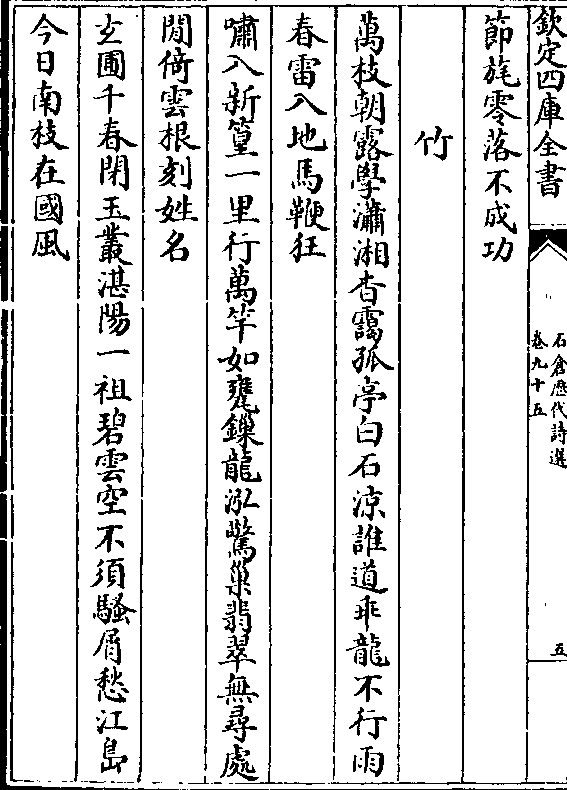 欽定四庫全書
石倉歷代詩選
卷九十五
五
節旄零落不成功
竹
萬枝朝露學瀟湘杳靄孤亭白石涼誰道乖龍不行雨
春雷入地馬鞭狂
嘯入新篁一里行萬竿如甕鏁龍泓驚巢翡翠無尋處
閒倚雲根刻姓名
玄圃千春閉玉叢湛陽一祖碧雲空不須騷屑愁江島
今日南枝在國風